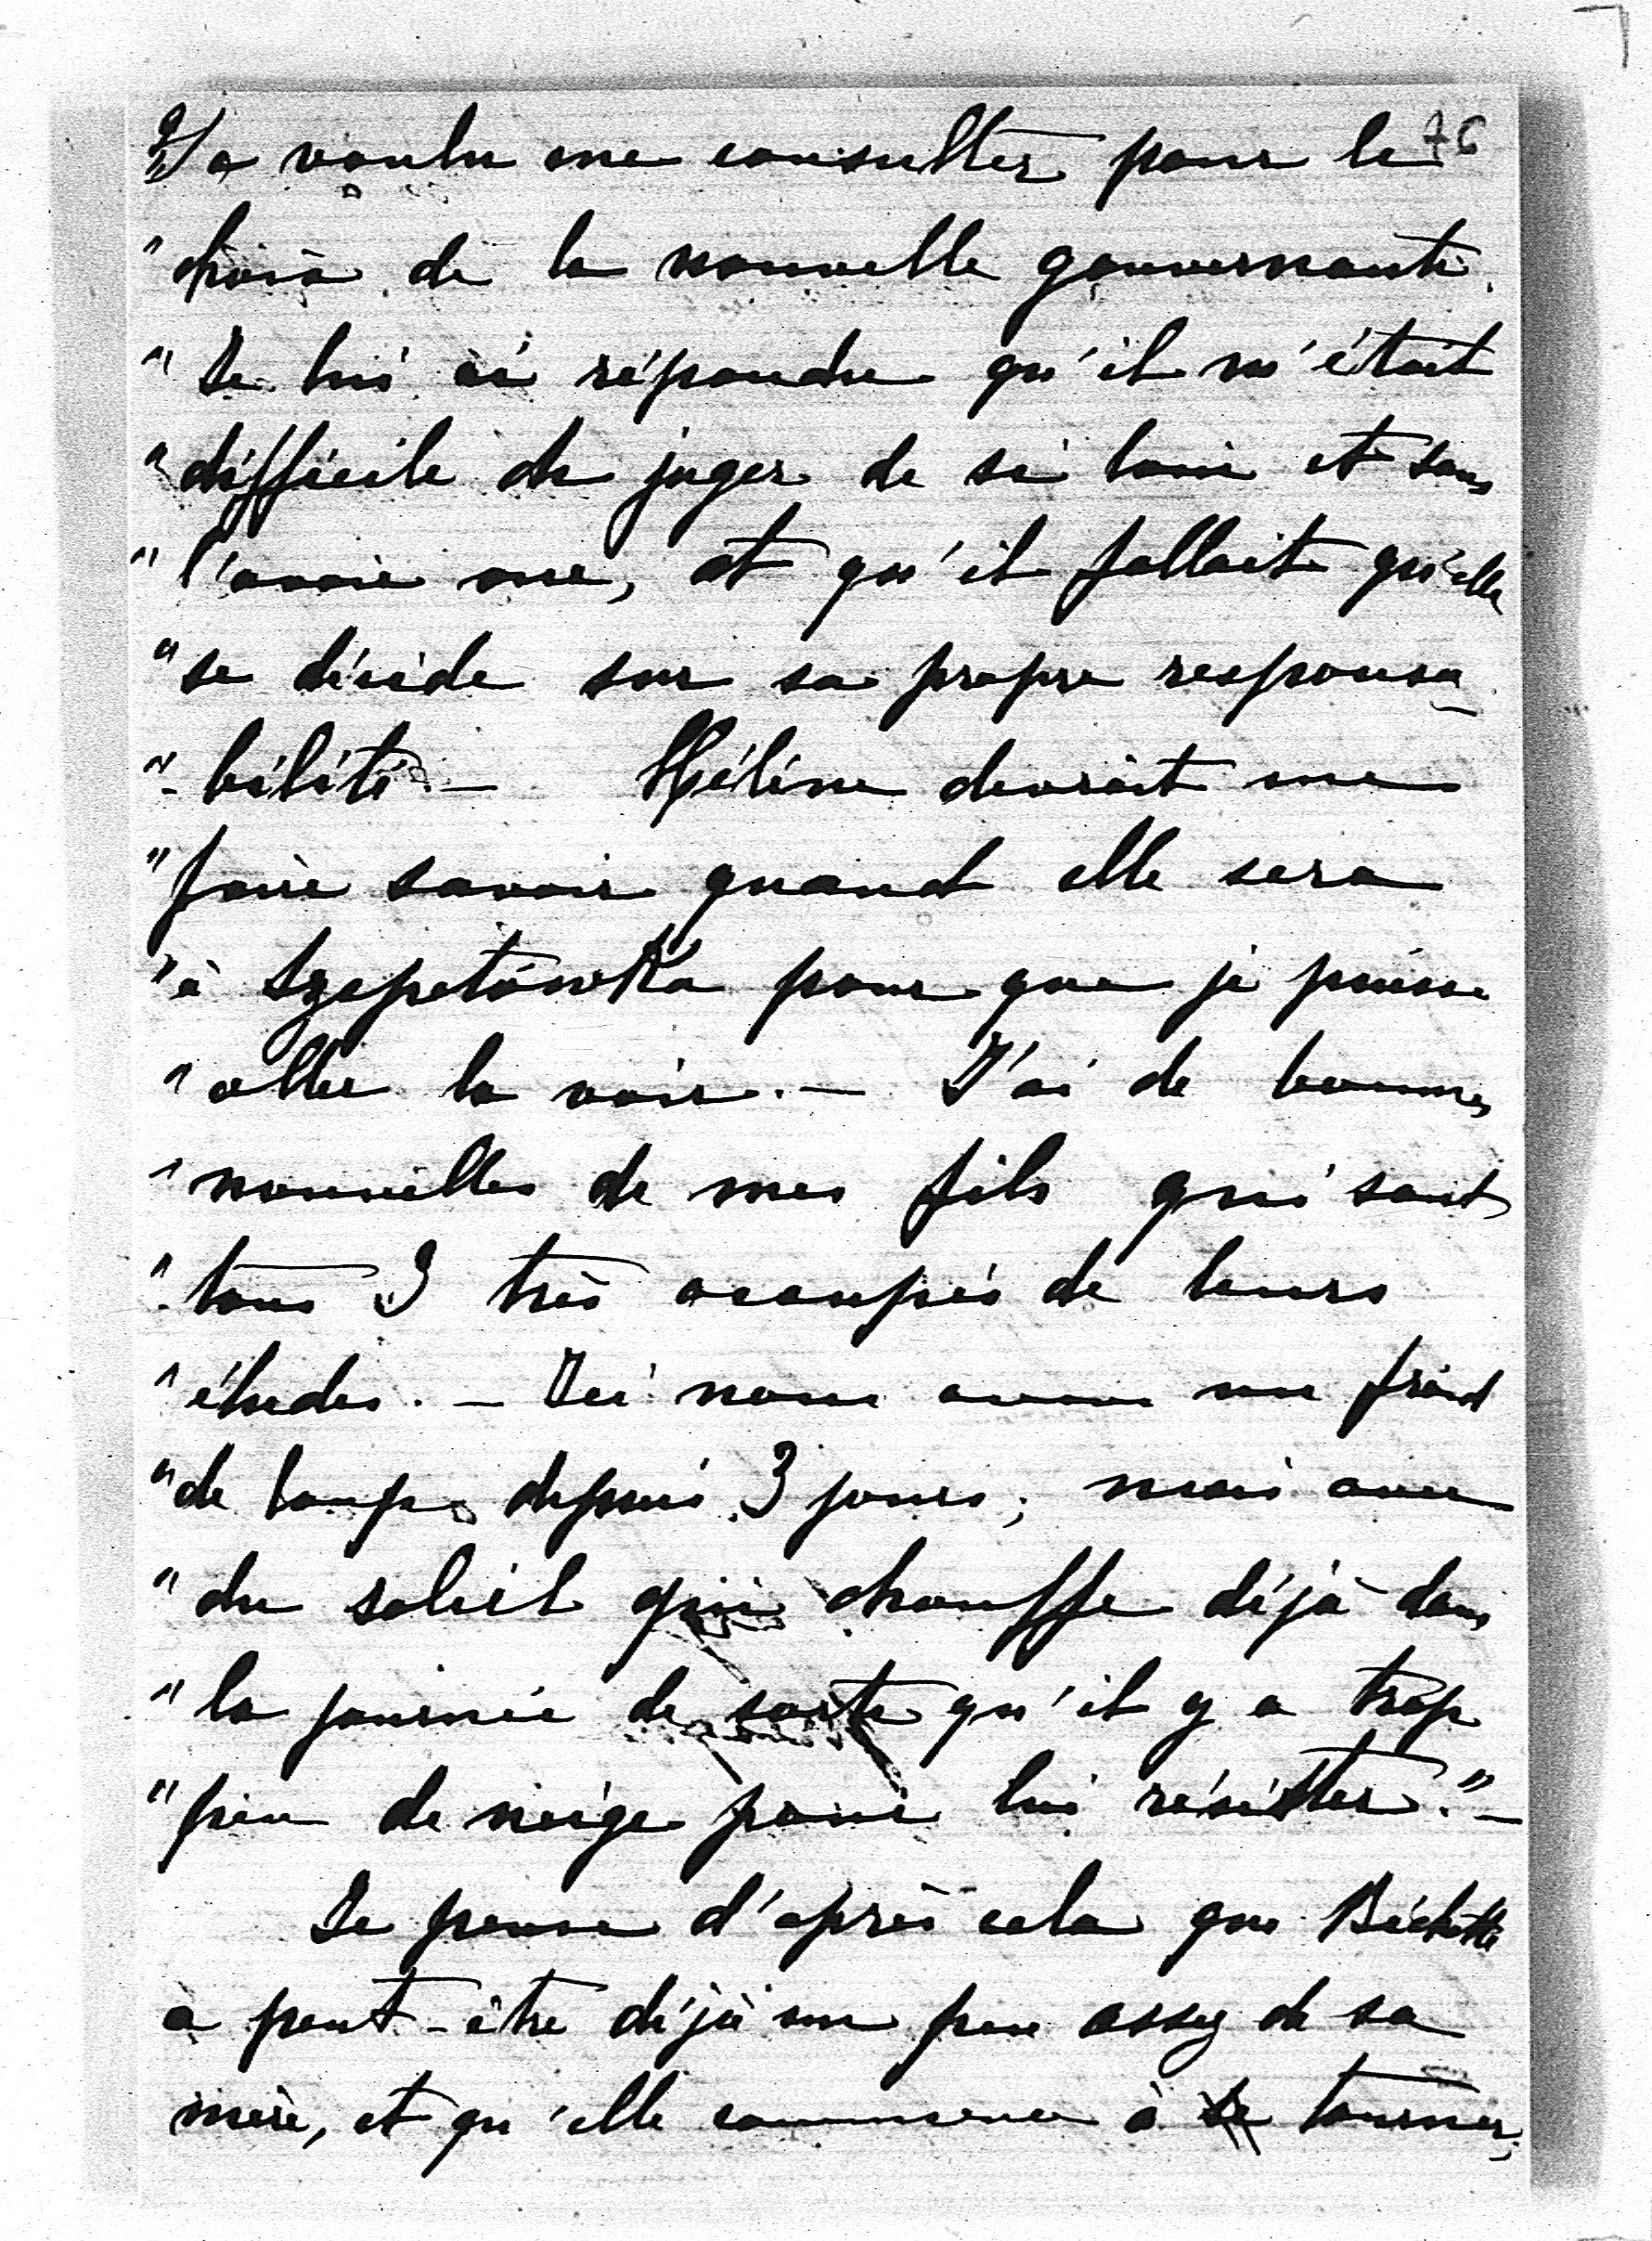 76
"a voulu me consulter pour le
"choix de la nouvelle gouvernante.
"Je lui ai répondu qu'il m'était
"difficile de juger de si loin et sans
"l'avoir vue, et qu'il fallait qu'elle
"se décide sur sa propre responsa-
"-bilité. — Hélène devrait me
"faire savoir quand elle sera
"à Szepetówka pour que je puisse
"aller la voir. — J'ai de bonnes
"nouvelles de mes fils qui sont
"tous 3 très occupés de leurs
"études. — Ici nous avons un froid
"de loups depuis 3 jours; mais avec
"du soleil qui chauffe déjà dans
"la journée de sorte qu'il y a trop
"peu de neige pour lui résister." —
Je pense d'après cela que Béchette
a peut-être déjà un peu assez de sa
mère, et qu'elle commence à se tourner,